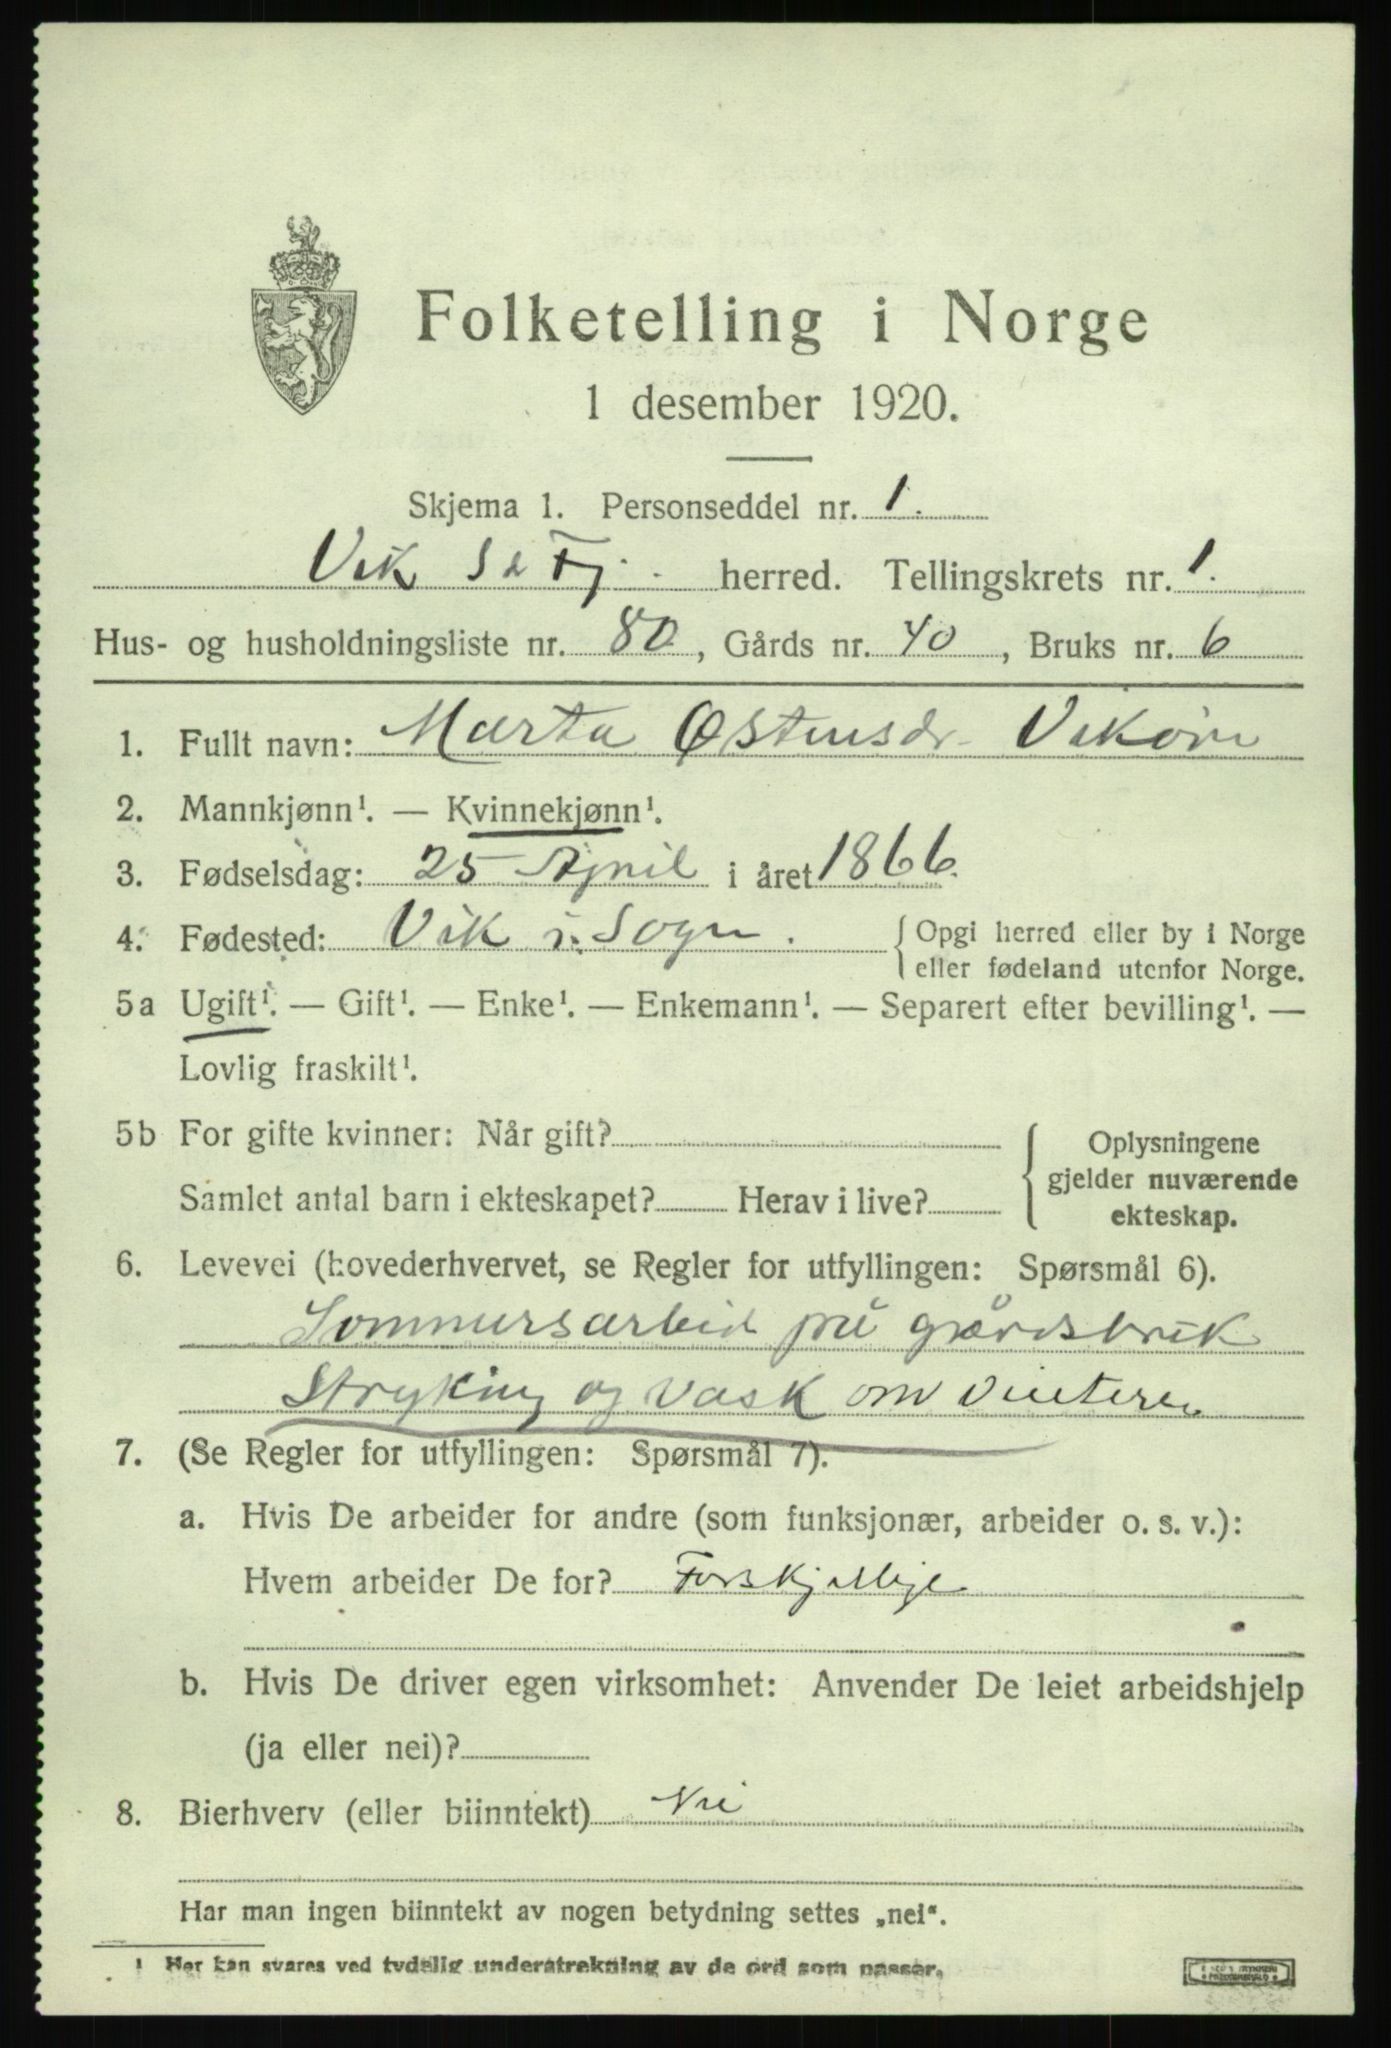 Folketelling i Norge
1 desember 1920.
Skjema 1. Personseddel nr. 1.
Vik S & Fj. herred. Tellingskrets nr. 1.
Hus- og husholdningsliste nr. 80, Gårds nr. 40, Bruks nr. 6
1. Fullt navn: Marta Østensdr. Vikøren
2. Mannkjønn¹. — Kvinnekjønn¹.
3. Fødselsdag: 25 April i året 1866.
4. Fødested: Vik i Sogn. { Opgi herred eller by i Norge
eller fødeland utenfor Norge.
5a Ugift¹. — Gift¹. — Enke¹. — Enkemann¹. — Separert efter bevilling¹. —
Lovlig fraskilt¹.
5b For gifte kvinner: Når gift?
Samlet antal barn i ekteskapet? Herav i live?
{ Oplysningene
gjelder nuværende
ekteskap.
6. Levevei (hovederhvervet, se Regler for utfyllingen: Spørsmål 6).
Sommersarbeid på gårdsbruk
Stryking og vask om vinteren
7. (Se Regler for utfyllingen: Spørsmål 7).
a. Hvis De arbeider for andre (som funksjonær, arbeider o. s. v.):
Hvem arbeider De for? Forskjellige
b. Hvis De driver egen virksomhet: Anvender De leiet arbeidshjelp
(ja eller nei)?
8. Bierhverv (eller biinntekt) Nei
Har man ingen biinntekt av nogen betydning settes „nei“.
¹ Her kan svares ved tydelig understrekning av de ord som passer.